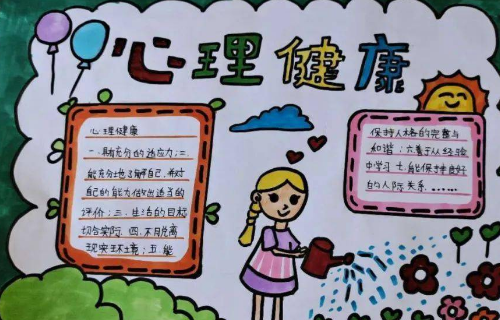 心理健康
心理健康
一.具有充分的适应力;二.
能充分地了解自己,并对
自己的能力做出适当的
评价;三.生活的目标
切合实际.四.不脱离
现实环境;五.能
保持人格的完善与
和谐;六.善于从经验
中学习.七.能保持良好
的人际关系......